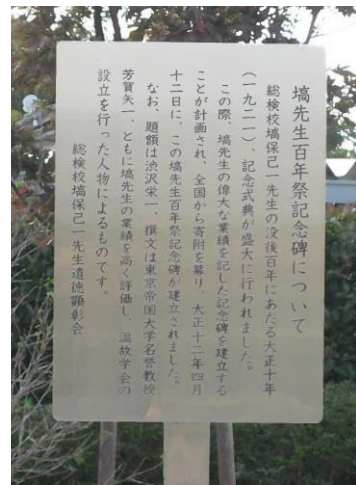 塙先生百年祭記念碑について
総検校塙保己一先生の没後百年にあたる大正十年
(一九二一)、記念式典が盛大に行われました。
この際、塙先生の偉大な業績を記した記念碑を建立する
ことが計画され、全国から寄附を募り、大正十二年四月
十二日に、この塙先生百年祭記念碑が建立されました。
なお、題額は渋沢栄一、撰文は東京帝国大学名誉教授
芳賀矢一、ともに塙先生の業績を高く評価し、温故学会の
設立を行った人物によるものです。
総検校塙保己一先生遺徳顕彰会